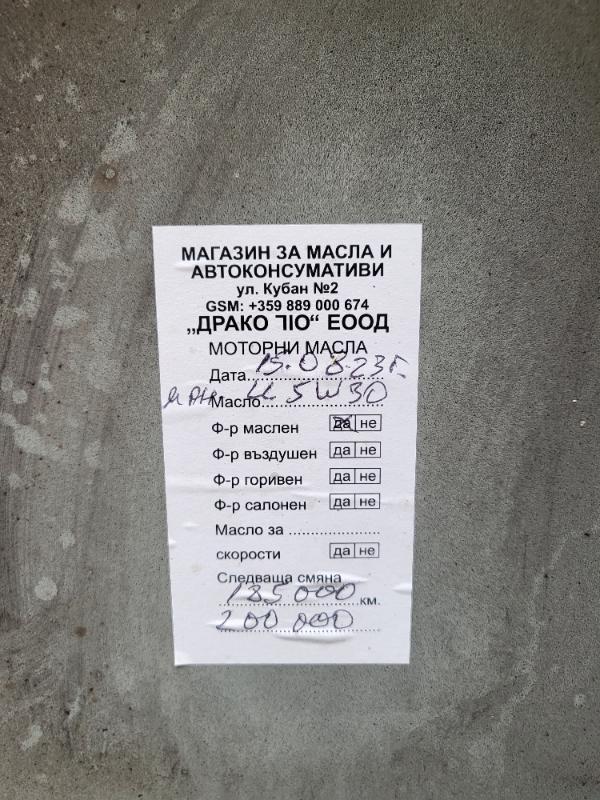 МАГАЗИН ЗА МАСЛА И
АВТОКОНСУМАТИВИ
ул. Кубан №2
GSM: +359 889 000 674
„ДРАКО ОІЛ“ ЕООД
МОТОРНИ МАСЛА
Дата 15.08.23г.
Масло 5W30
Ф-р маслен да не
Ф-р въздушен да не
Ф-р горивен да не
Ф-р салонен да не
Масло за
скорости да не
Следваща смяна
185000 км.
200 000